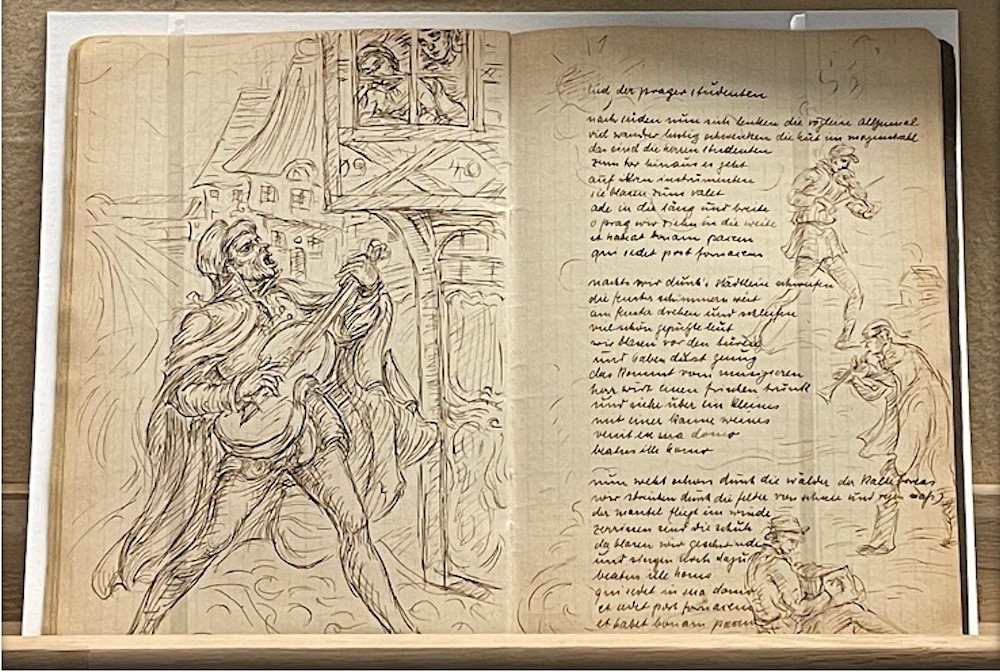 19 40
lied der prager studenten
nach süden nun sich lenken die vöglein allzumal
viel wandrer lustig schwenken die hüt im morgenstrahl
das sind die herren studenten
zum tor hinaus es geht
auf ihren instrumenten
sie blasen zum valet
ade in die läng und breite
o prag wir ziehn in die weite
et habeat bonam pacem
qui sedet post fornacem
nachts wir durch's städtlein schweifen
die fenster schimmern weit
am fenster drehen und schleifen
viel schön geputzte leut
wir blasen vor den türen
und haben durst genug
das kommt vom musizieren
herr wirt einen frischen trunk
und siehe über ein kleines
mit einer kanne weines
venit ex sua domo
beatus ille homo
nun weht schon durch die wälder der kalte boreas
wir streichen durch die felder von schnee und regen naß
der mantel fliegt im winde
zerrissen sind die schuh
da blasen wir geschwinde
und singen noch dazu
beatus ille homo
qui sedet in sua domo
et sedet post fornacem
et habet bonam pacem